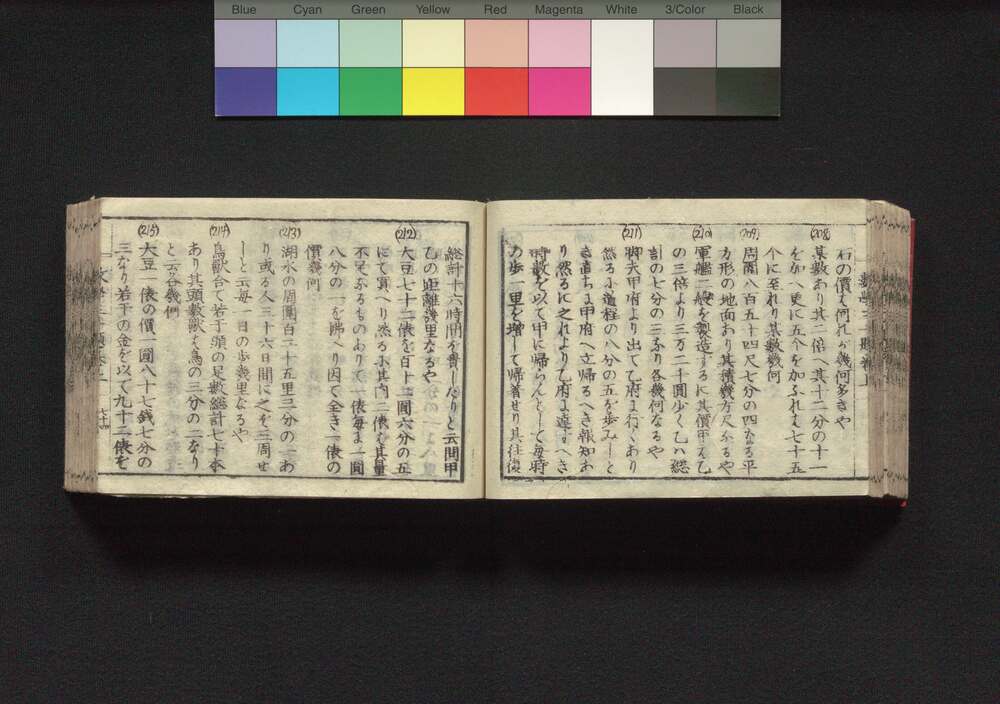 Blue Cyan Green Yellow Red Magenta White 3/Color Black
石の價は何れか幾何多きや
(208)
某數あり其二倍へ其十二分の十一
を加へ更に五个を加ふれは七十五
个に至れり某數幾何
(209)
周圍八百五十四尺七分の四なる平
方形の地面あり其積幾方尺なるや
(210)
軍艦二艘を製造するに其價甲は乙
の三倍より三万二千圓少く乙は總
計の七分の三なり各幾何なるや
(211)
脚夫甲府より出て乙府に行くあり
然るに道程の八分の五を歩みしと
き直ちに甲府へ立帰るへき報知あ
り然るに之れより乙府に達すへき
時數を以て甲に帰らんとして毎時
の歩一里を増して帰着せり其往復
総計十六時間を費したりと云問甲
乙の距離幾里なるや
(212)
大豆七十二俵を百十二圓六分の五
にて買へり然るに其内二俵は其量
不足ふるものありて一俵毎に一圓
八分の一を賜へり因て全き一俵の
價幾何
(213)
湖水の周圍百二十五里三分の一あ
り或る人三十六日間に之を三周せ
しと云毎一日の歩幾里なるや
(214)
鳥獣合て若干頭の足數総計七十本
あり其頭數獣は鳥の三分の二なり
と云各幾何
(215)
大豆一俵の價一圓八十七銭七分の
三なり若干の金を以て九十二俵を